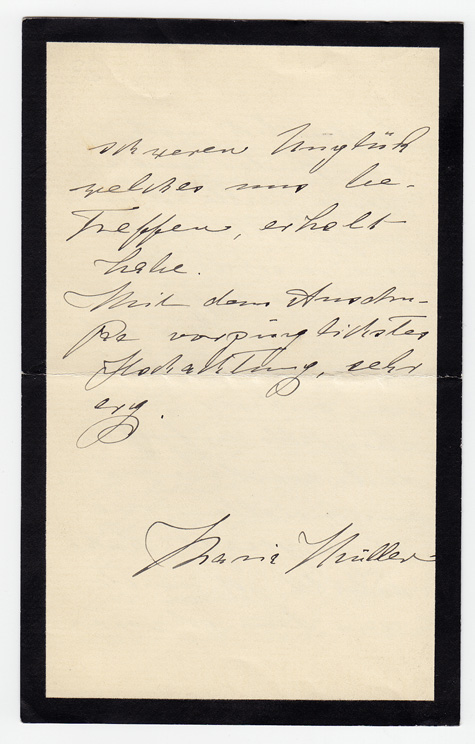 schweren Unglück
welches uns be-
treffen, erhalt
habe.
Mit dem Ausdru-
ke vorzüglichster
Hochachtung, sehr
erg.
Maria Müller